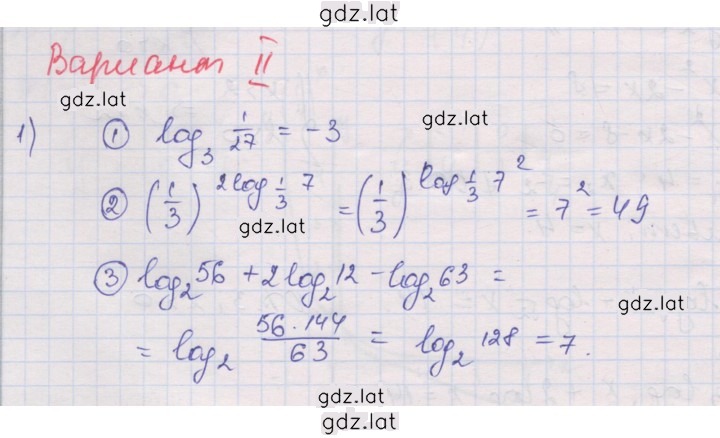 gdz.lat
Вариант II
gdz.lat
gdz.lat
1) ① log₃ 1/27 = -3
② (1/3)^(2log_(1/3) 7) = (1/3)^(log_(1/3) 7²) = 7² = 49
gdz.lat
③ log₂56 + 2log₂12 - log₂63 =
gdz.lat
= log₂ (56·144)/63 = log₂128 = 7.
gdz.lat
gdz.lat